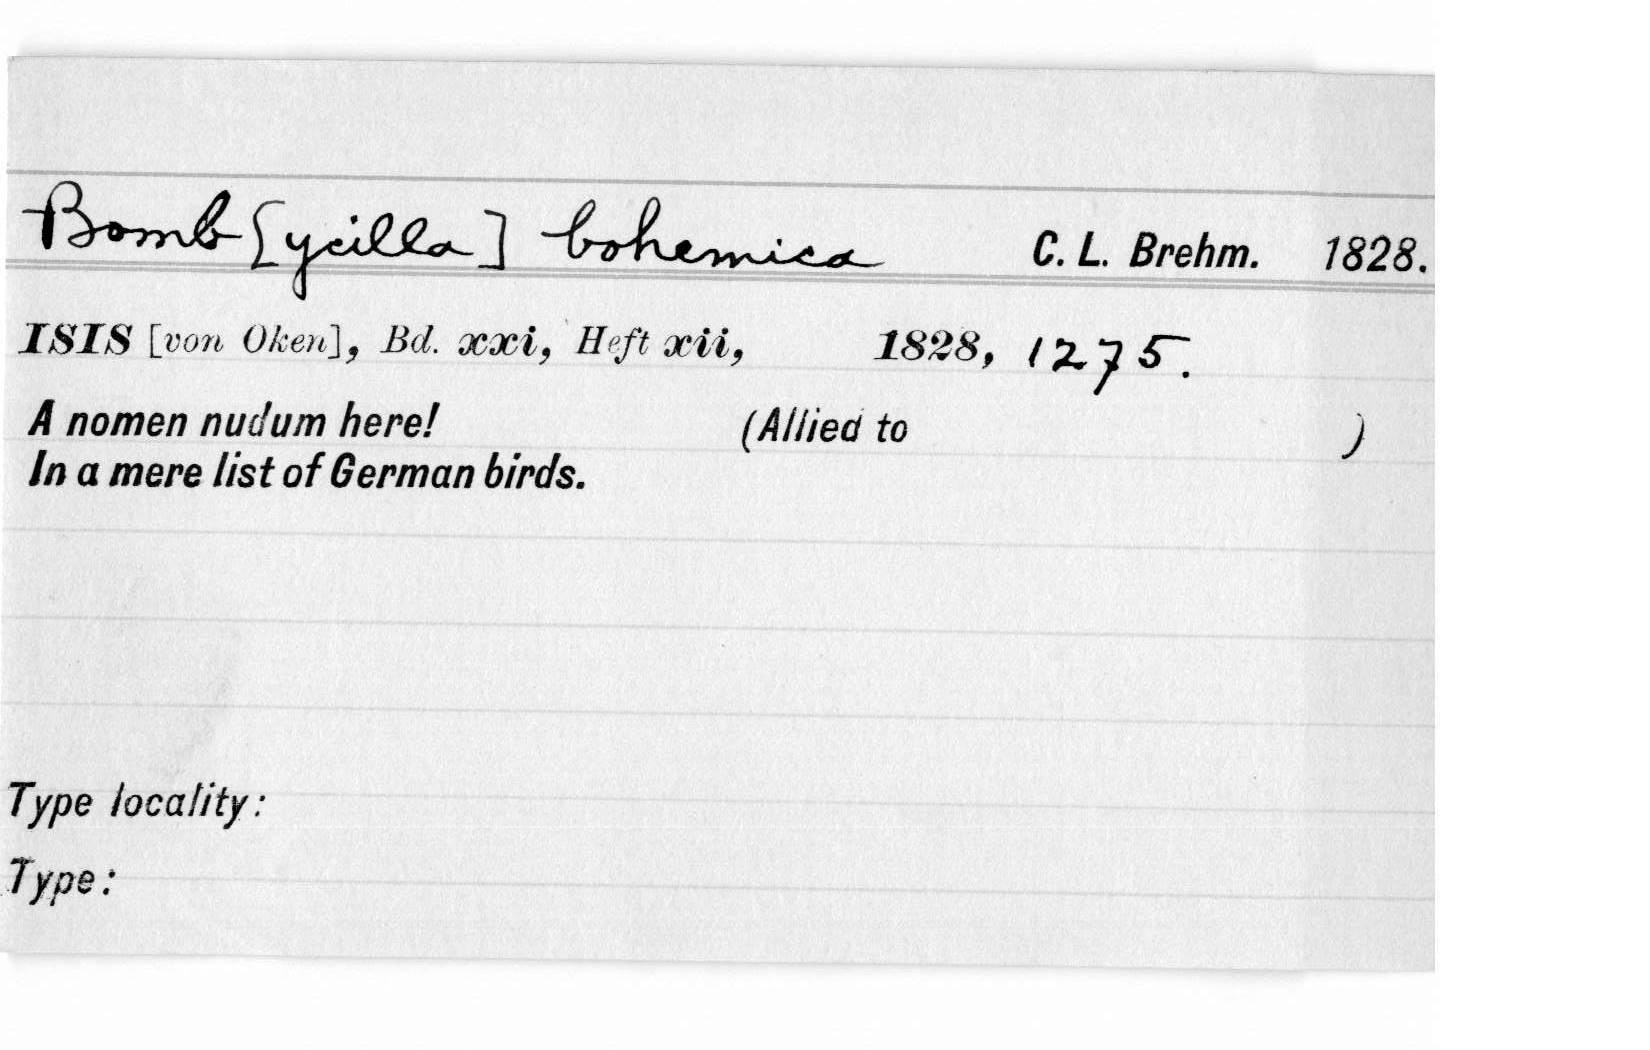 Bomb[ycilla] bohemica C. L. Brehm. 1828.
ISIS [von Oken], Bd. xxi, Heft xii, 1828, 1275.
A nomen nudum here! (Allied to )
In a mere list of German birds.
Type locality:
Type: